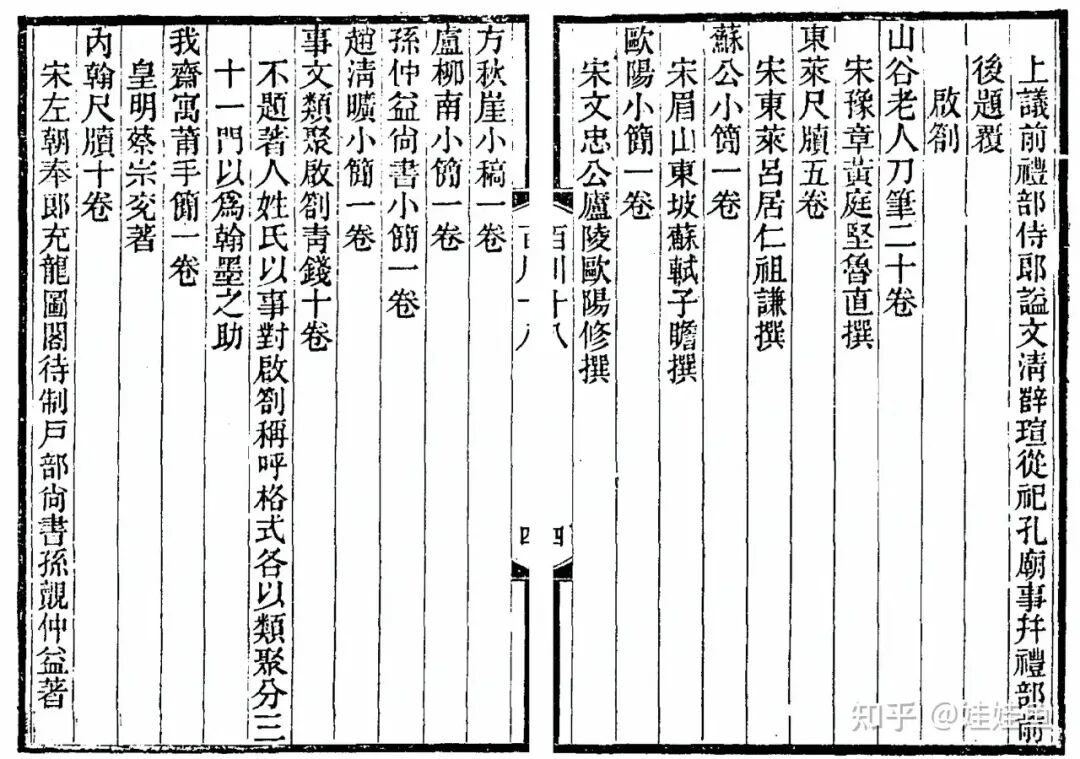 上議前禮部侍郎謚文清薛瑄從祀孔廟事幷禮部前
後題覆
啟劄
山谷老人刀筆二十卷
宋豫章黃庭堅魯直撰
東萊尺牘五卷
宋東萊呂居仁祖謙撰
蘇公小簡一卷
宋眉山東坡蘇軾子瞻撰
歐陽小簡一卷
宋文忠公廬陵歐陽修撰
四
四
方秋崖小稿一卷
盧柳南小簡一卷
孫仲益尚書小簡一卷
趙淸曠小簡一卷
事文類聚啟劄青錢十卷
不題著人姓氏以事對啟劄稱呼格式各以類聚分三
十一門以爲翰墨之助
我齋寓莆手簡一卷
皇明蔡宗兗著
內翰尺牘十卷
宋左朝奉郎充龍圖閣待制戶部尚書孫覿仲益著
知乎 @娃娃魚